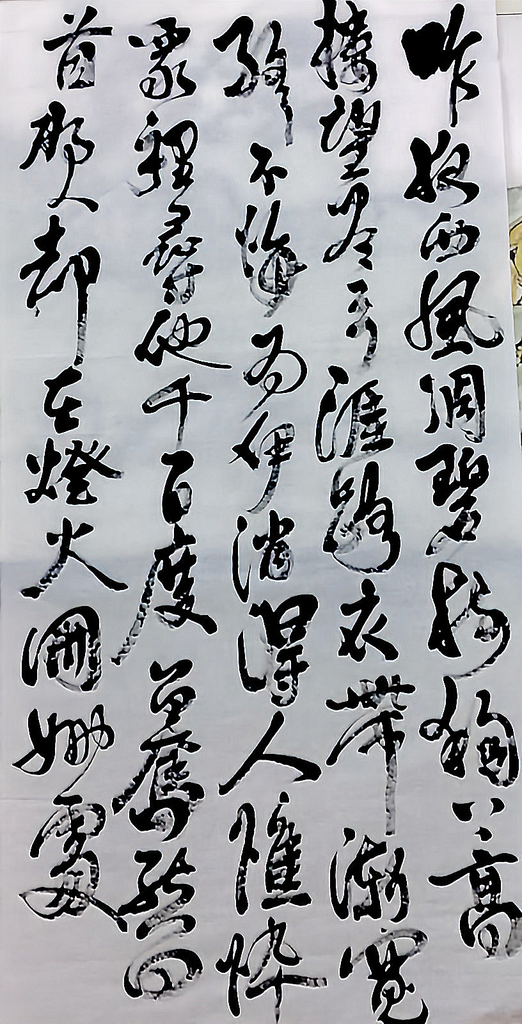 昨夜西風凋碧樹獨上高
樓望盡天涯路衣帶漸寬
終不悔為伊消得人憔悴
眾裡尋他千百度驀然回
首那人却在燈火闌珊處